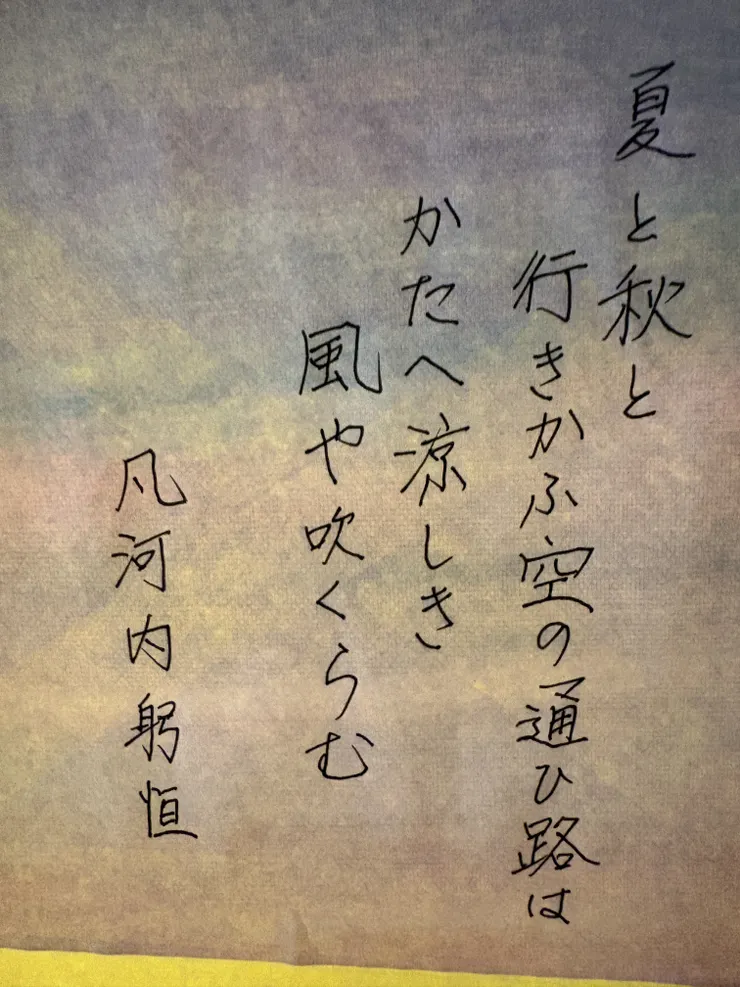 夏と秋と
行きかふ空の通ひ路は
かたへ涼しき
風や吹くらむ
凡河内躬恒